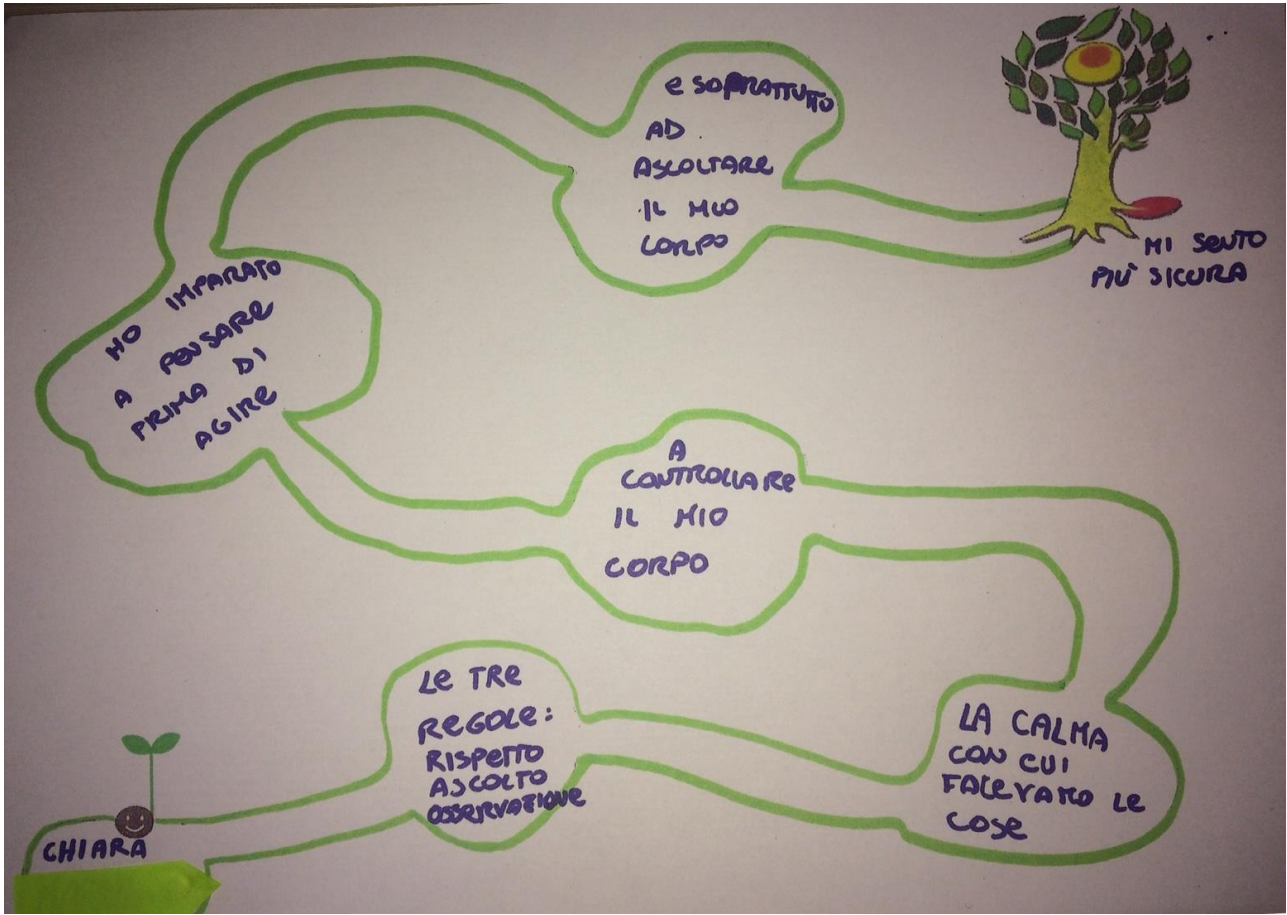 CHIARA
Le TRe
ReGOLe:
RISPETTO
ASCOLTO
OSSERVAZIONE
LA CALMA
CON CUI
FACEVAMO Le
COSe
A
CONTROLLARe
IL MIO
CORPO
HO IMPARATO
A PENSARe
PRIMA DI
AGIRe
e SOPRATTUTTO
AD
ASCOLTARe
IL MIO
CORPO
MI SENTO
PIÙ SICURA